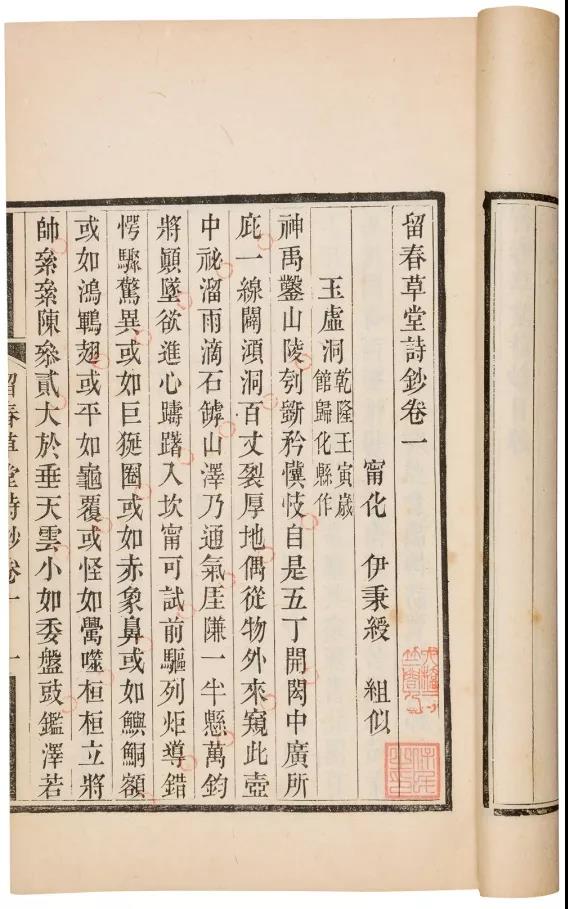 留春草堂詩鈔卷一
甯化　伊秉綬　組似
玉虛洞 乾隆壬寅歲館歸化縣作
神禹鑿山陵刳斵矜懻忮自是五丁開閎中廣所
庇一線闢澒洞百丈裂厚地偶從物外來窺此壺
中祕溜雨滴石罅山澤乃通氣厓㾾一牛懸萬鈞
將顛墜欲進心躊躇入坎甯可試前驅列炬導錯
愕驟驚異或如巨狿圈或如赤象鼻或如鱮鮦額
或如鴻鶤翅或平如龜覆或怪如鷽噬桓桓立將
帥纍纍陳叅貳大於垂天雲小如委盤豉鑑澤若
留春草堂詩鈔卷一
一